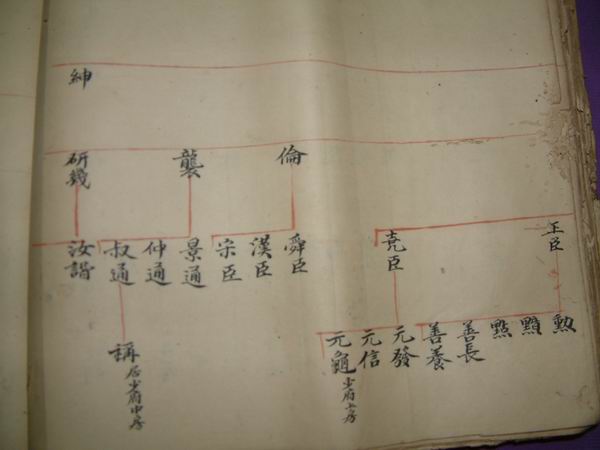 紳
倫
襲
研幾
王臣
尭臣
舜臣
漢臣
宋臣
景通
仲通
叔通
汝諧
勲
點
善長
善養
元發
元信
元龜少府上房
稱居少府中房